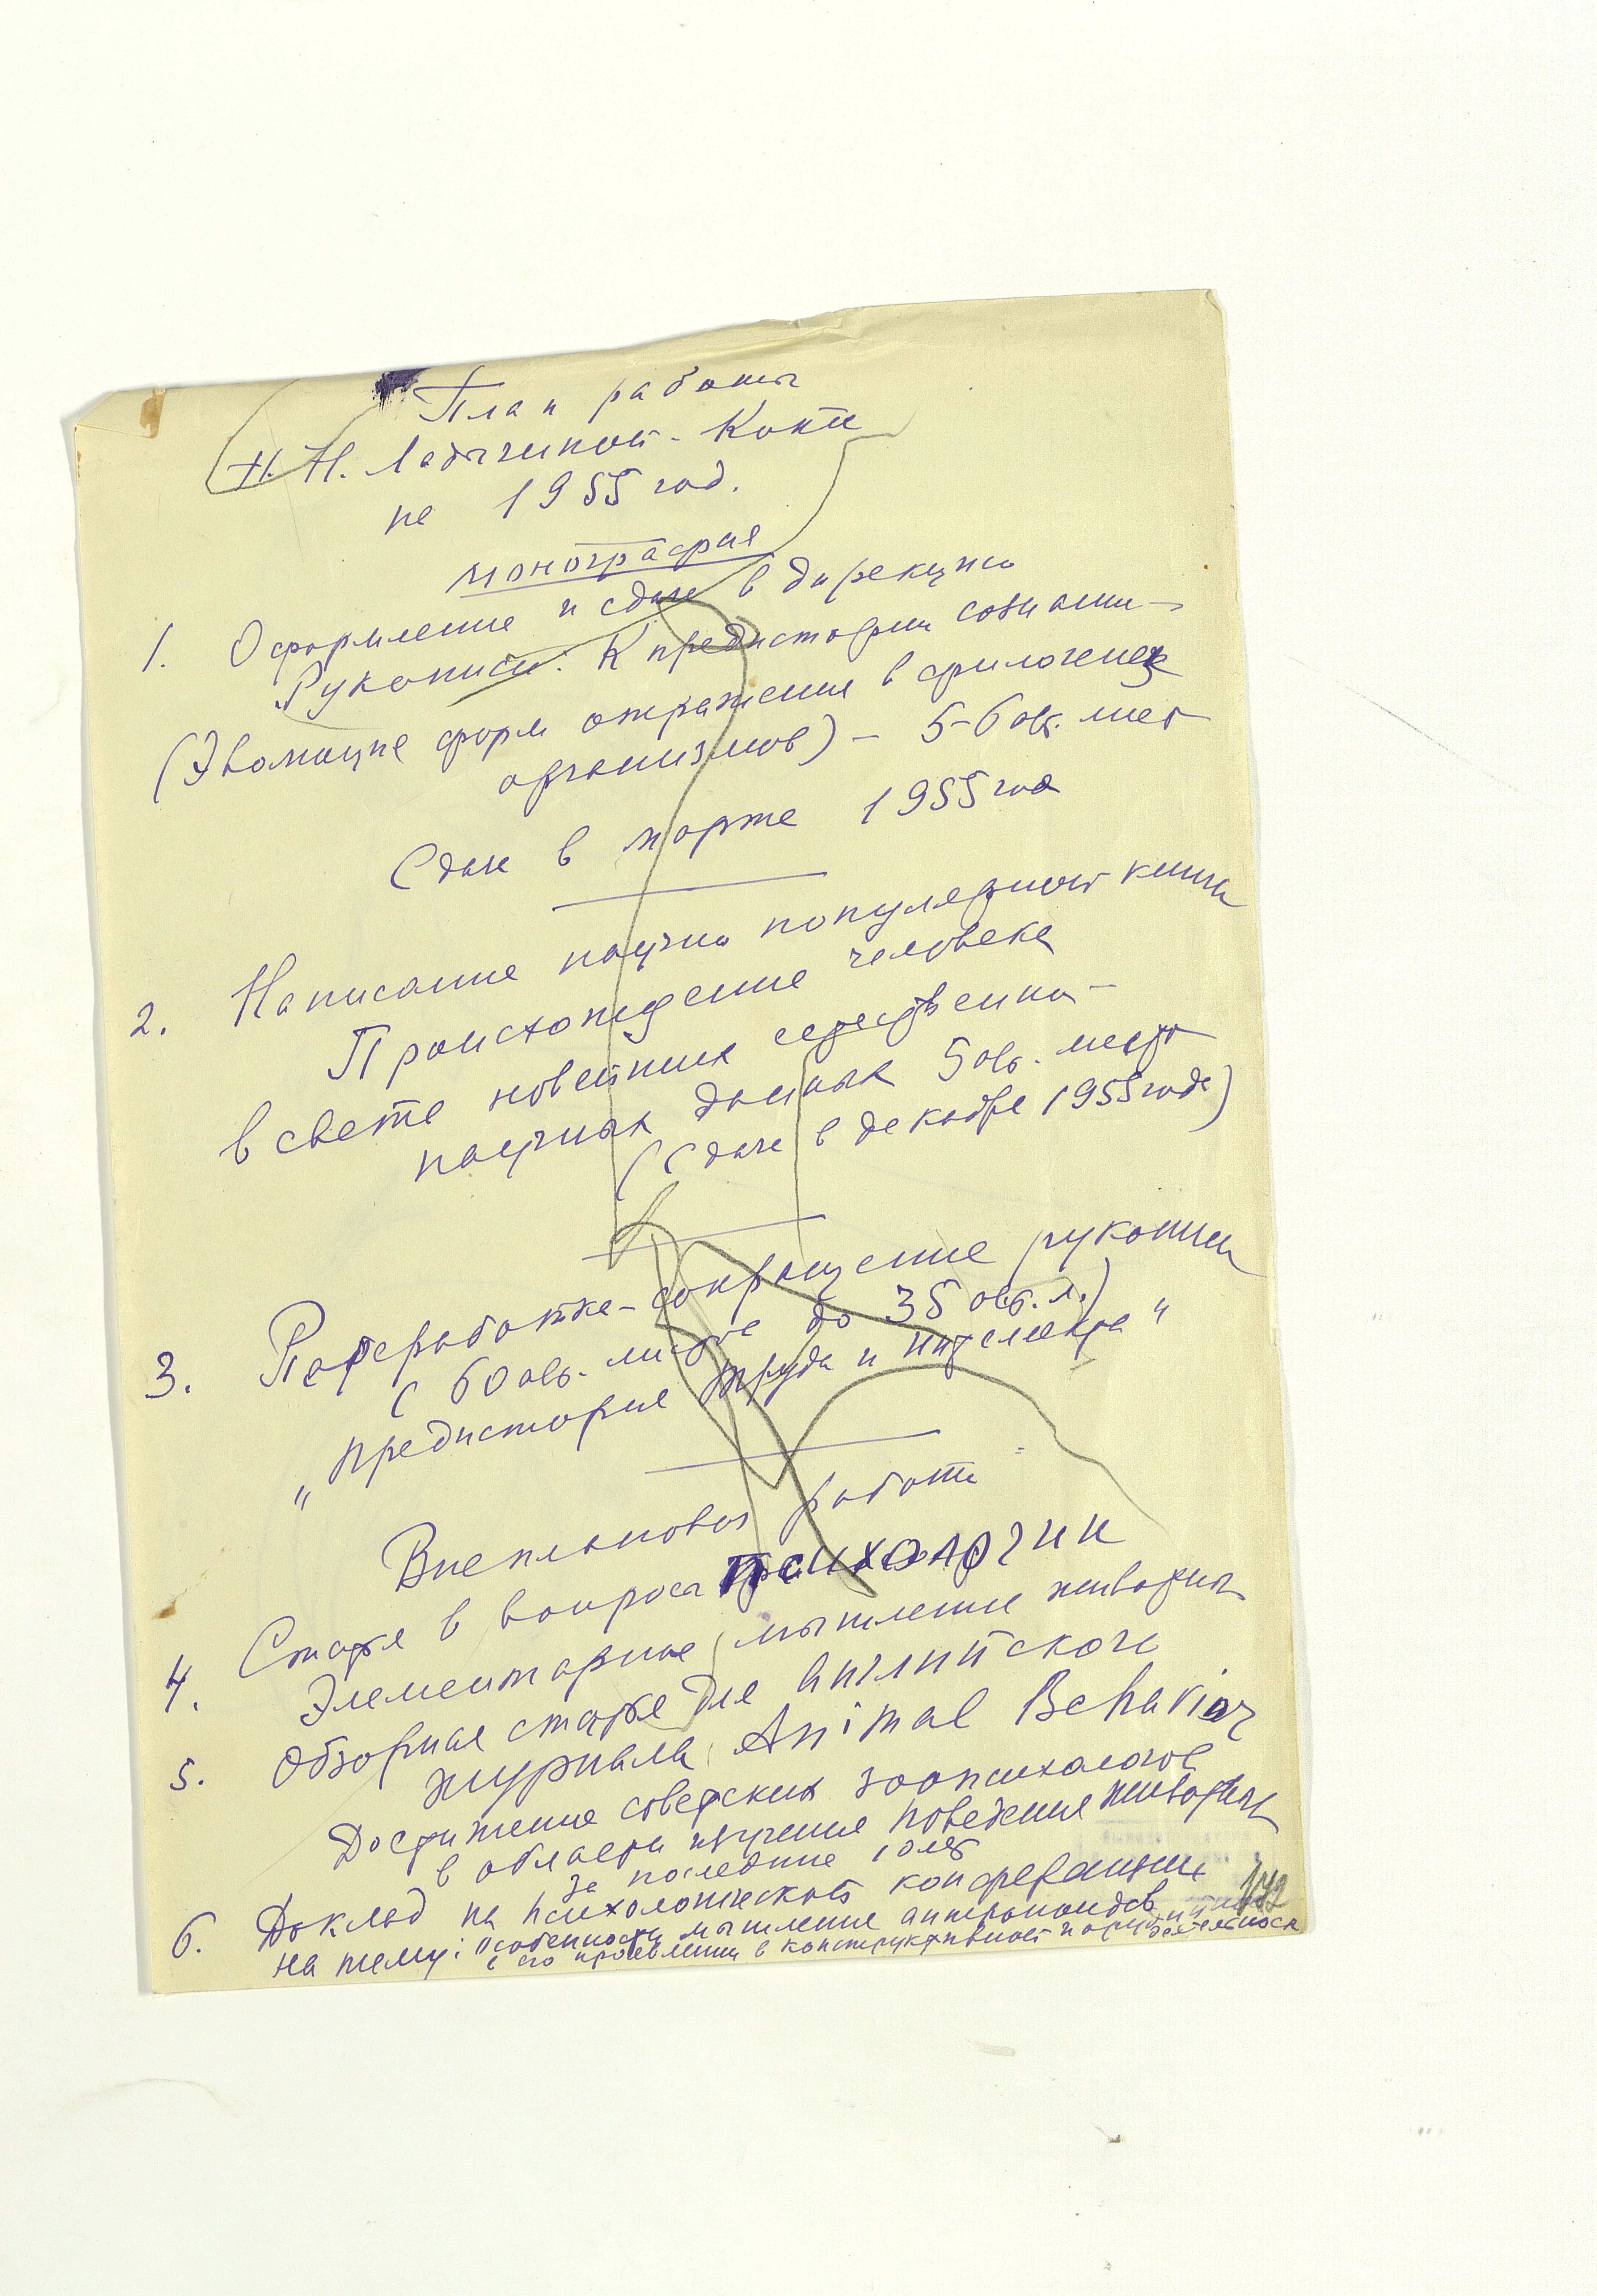 План работы
Н. Н. Ладыгиной-Котс
на 1955 год.
монография
1. Оформление и сдача в дирекцию
Рукописи: К предистории сознани-
(Эволюция форм отражения в филогенезе
организмов) - 5-6 авт. лист
Сдача в марте 1955 года
2. Написание научно популярной книги
Происхождение человека
в свете новейших естественно-
научных данных 5 авт. листов
(Сдача в декабре 1955 года)
3. Переработка-сокращение рукописи
(60 авт. листов до 35 авт. л.)
„Предистория труда и интеллекта“
Внеплановая работа
4. Статья в вопросы психологии
Элементарное мышление животных
5. Обзорная статья для английского
журнала Animal Behavior
Достижения советских зоопсихологов
в области изучения поведения животных
за последние 10 лет
6. Доклад на психологической конференции
на тему: Особенности мышления антропоидов
в его проявлении в конструктивной и орудийной
деятельности
172